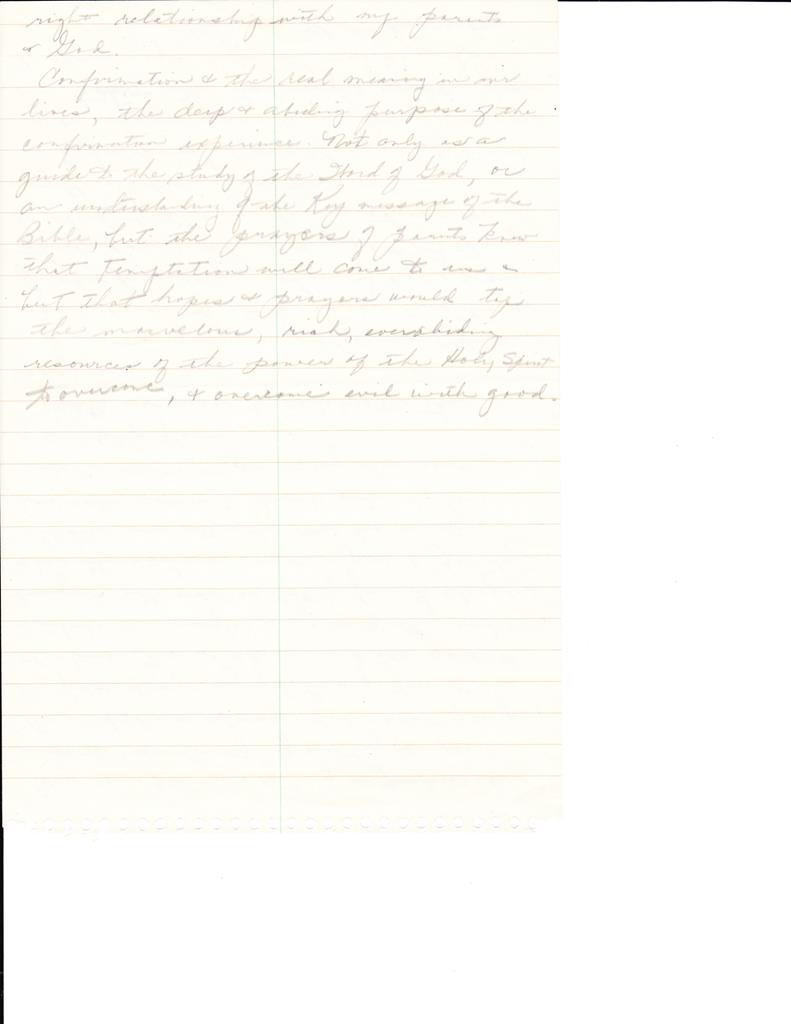 right relationship with my parents
& God.
Confirmation & the real meaning in our
lives, the deep & abiding purpose of the
confirmation experience. Not only as a
guide to the study of the Word of God, or
an understanding of the Key message of the
Bible, but the prayers of parents know
that Temptation will come to us
but that hopes & prayers would tap
the marvelous, rich, everabiding
resources of the power of the Holy Spirit
to overcome, & overcome evil with good.